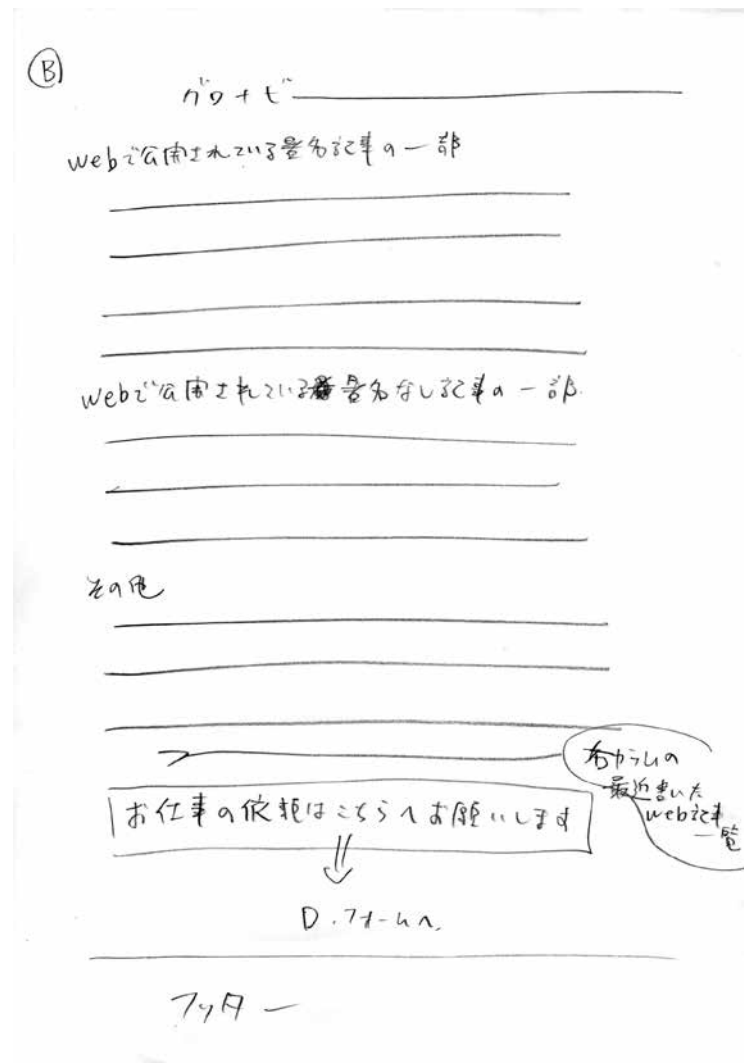 B
グロナビ
webで公開されている署名記事の一部
webで公開されている署名なし記事の一部
その他
右カラムの
最近書いた
web記事
一覧
お仕事の依頼はこちらへお願いします
D.フォームへ
フッター